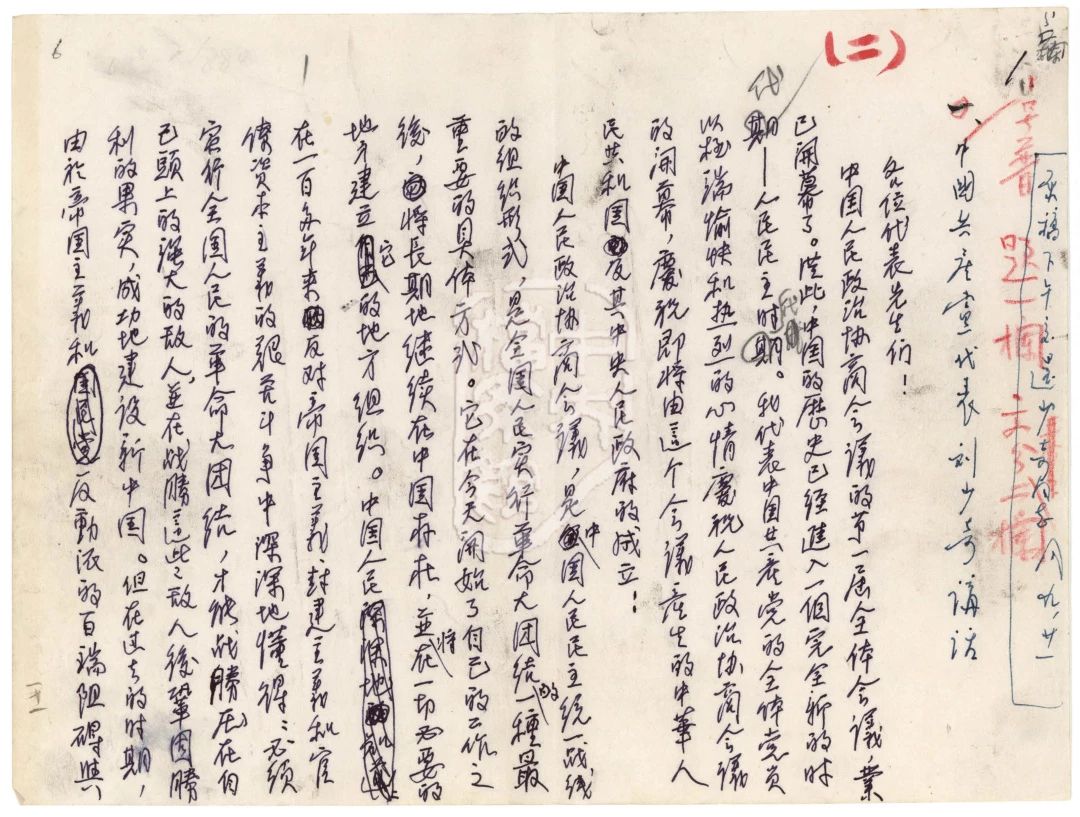 (二)
一、中国共产党代表刘少奇讲话
各位代表先生们！
中国人民政治协商会議的第一届全体会議，業
已開幕了。從此，中国的歷史已经進入一個完全新的时
代
期——人民民主时期。我代表中国共产党的全体党员
代
以極端愉快和热烈的心情慶祝人民政治协商会議
的開幕，慶祝即将由這个会議产生的中華人
民共和国及其中央人民政府的成立！
中国人民政治协商会議，是中国人民民主统一战线
的组织形式，是全国人民实行革命大团结的一種最
重要的具体方式。它在今天開始了自己的工作之
後，将長期地继续在中国存在，並将在一切必要的
地方建立它的地方组织。中国人民
在一百多年来反对帝国主義封建主義和官
僚資本主義的艱苦斗争中深深地懂得：必须
实行全国人民的革命大团结，才能战勝压在自
己頭上的強大的敌人，並在战勝這些敌人後鞏固勝
利的果实，成功地建设新中国。但在过去的时期，
由於帝国主義和国民党反動派的百端阻碍與
6